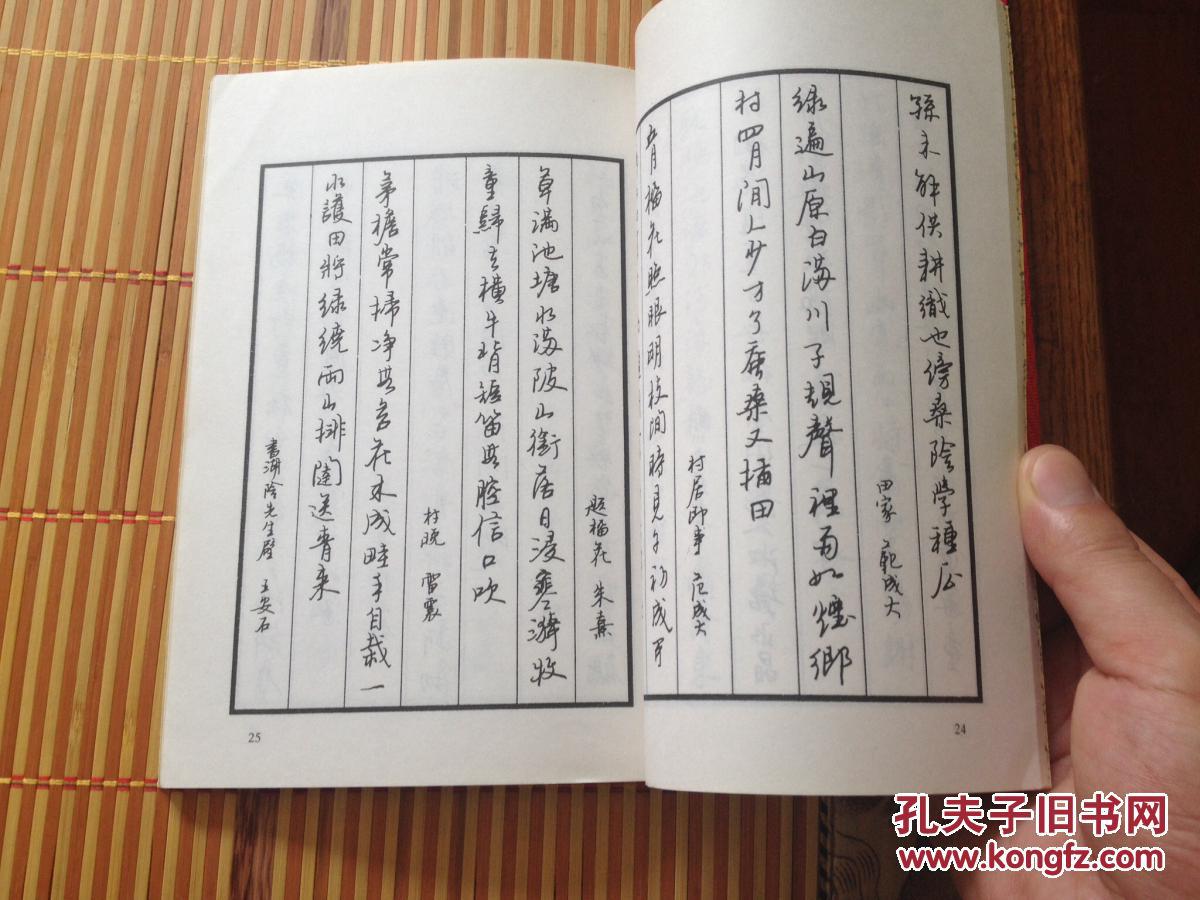 孫未解供耕織也傍桑陰学種瓜
田家 範成大
緑遍山原白滿川子規聲裡雨如煙鄉
村四月閒人少才了蚕桑又插田
村居即事 范成大
五月榴花照眼明枝間時見子初成可
24
題榴花 朱熹
草滿池塘水滿陂山銜落日浸寒漪牧
童歸去橫牛背短笛無腔信口吹
村晚 雷震
茅檐常掃净無苔花木成畦手自栽一
水護田將緑繞兩山排闥送青來
書湖陰先生壁 王安石
25
孔夫子旧书网
www.kongfz.com